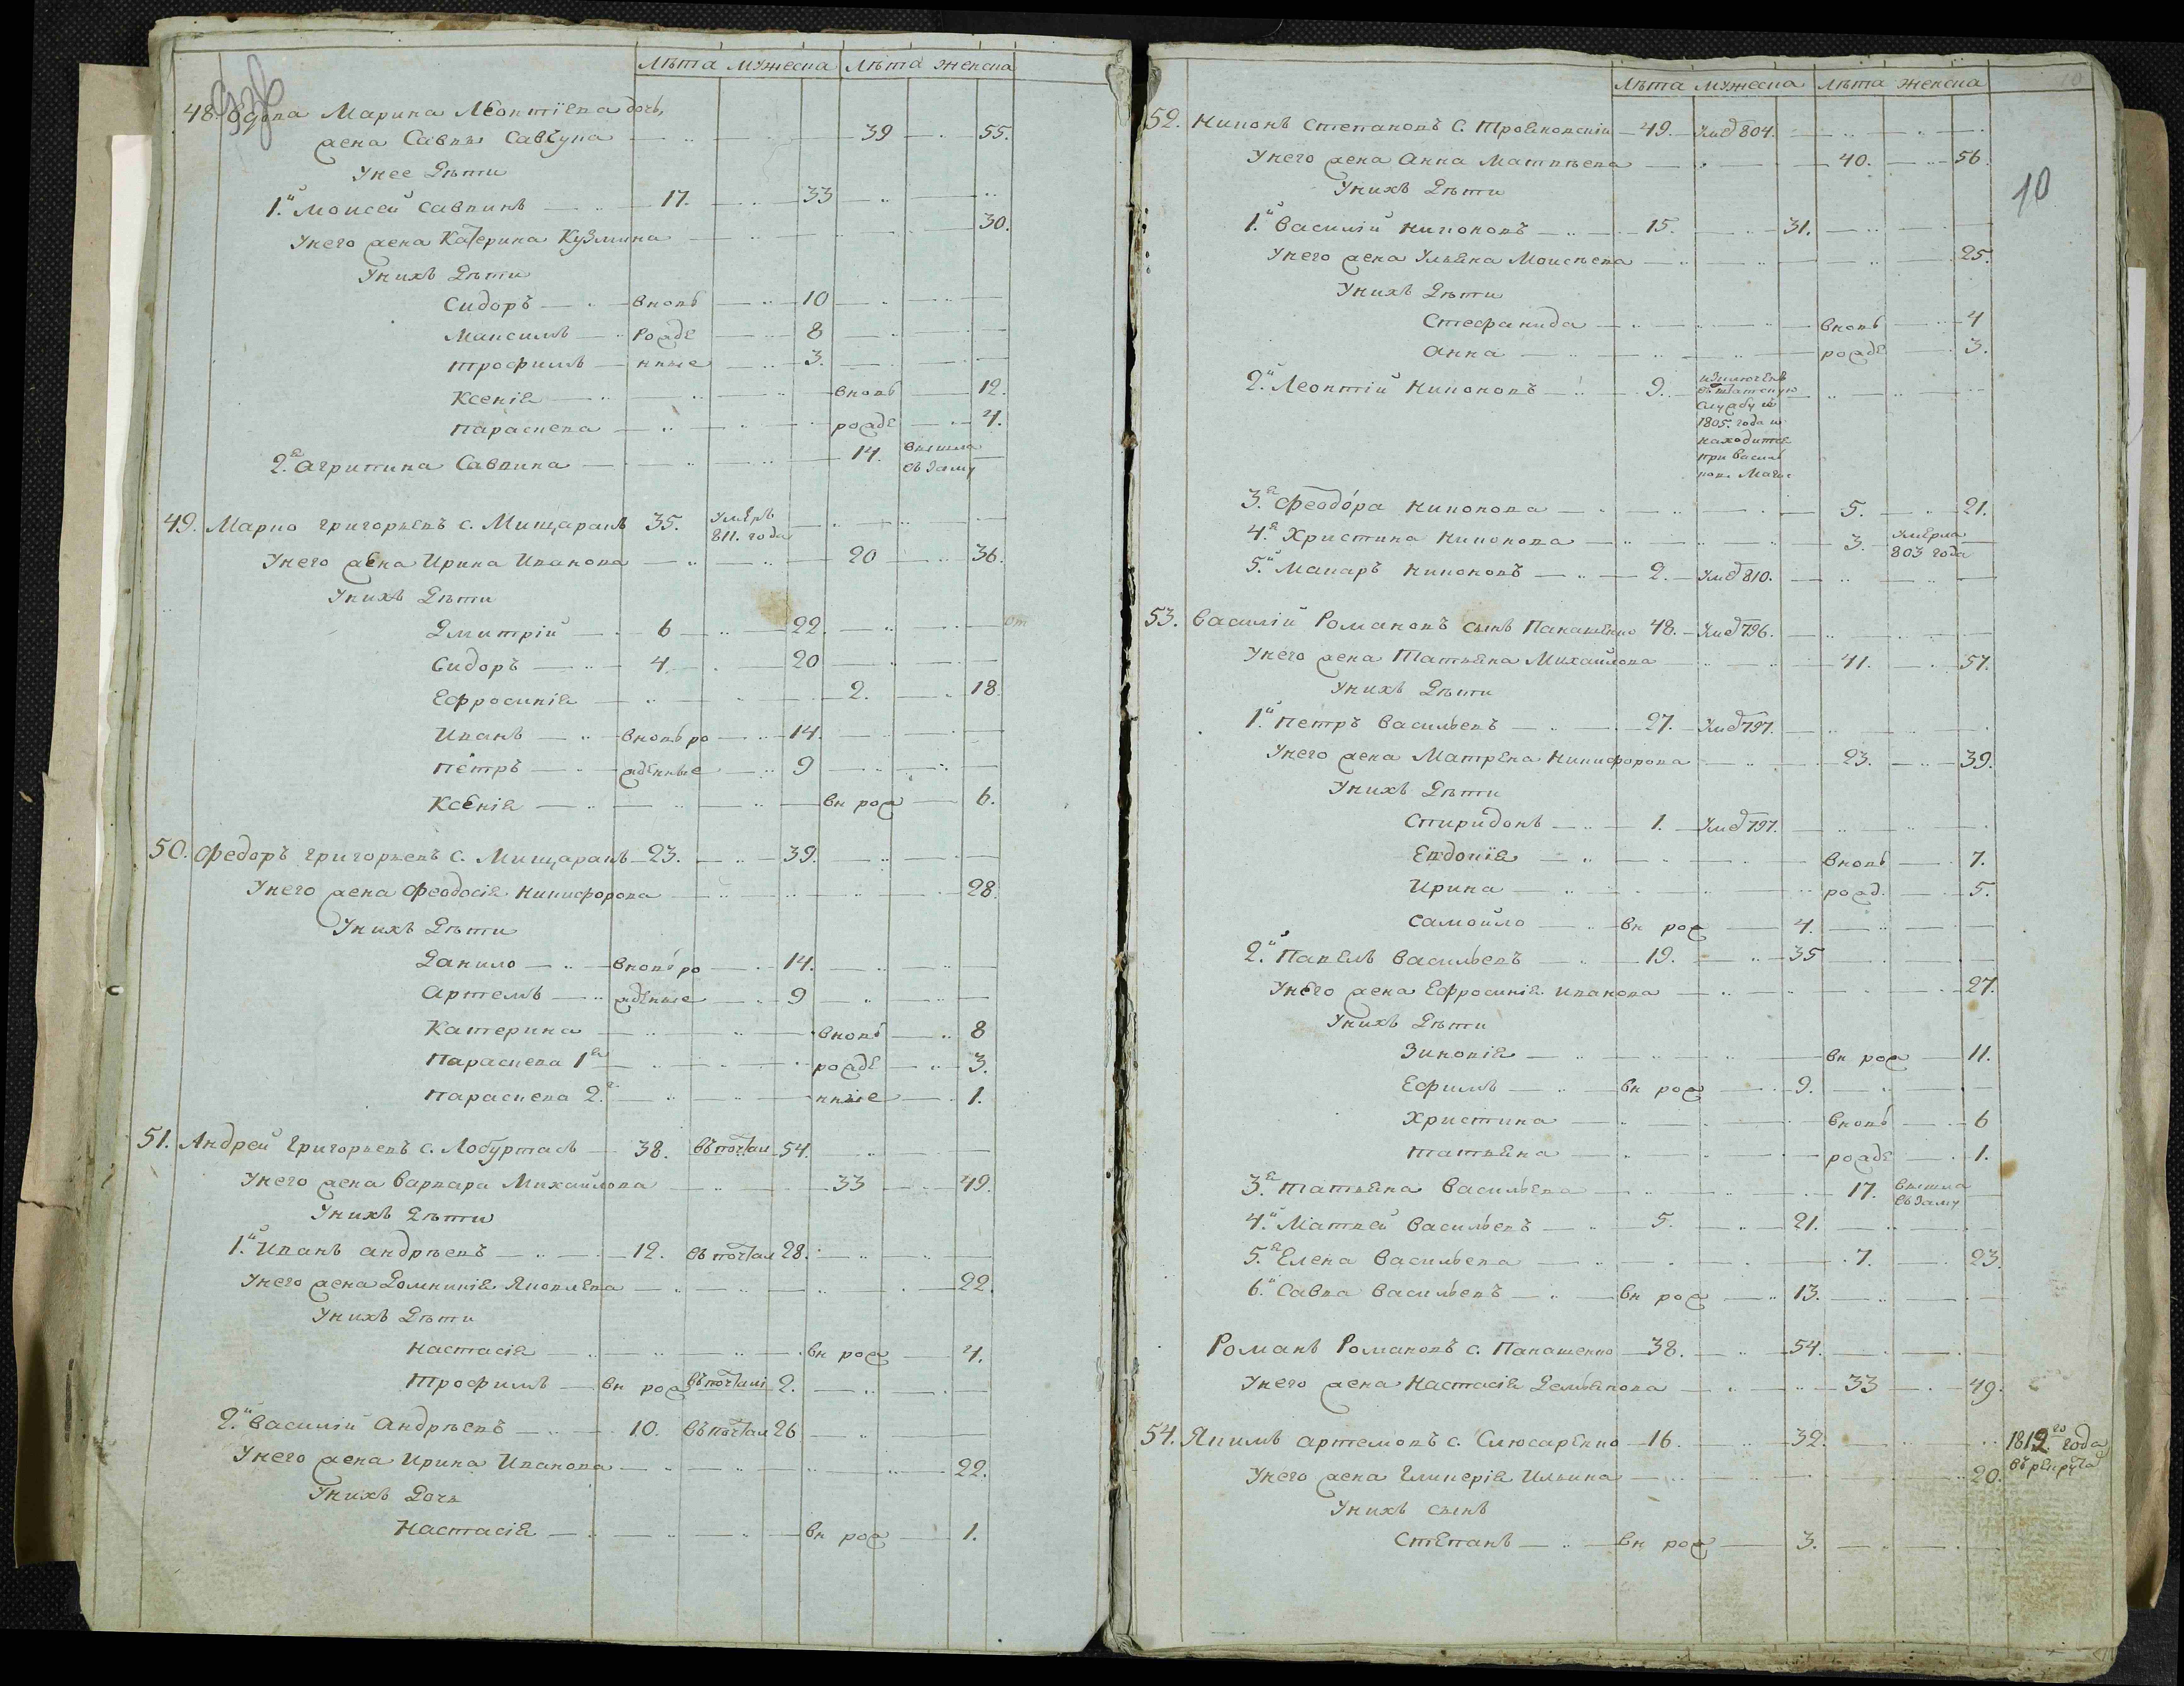 Лѣта мужеска Лѣта женска
48. Вдова Марина Леонтіева дочь,
жена Саввы Савчука 39 55.
У нее дѣти
1.й Моисей Саввинъ 17. 33
У него жена Катерина Кузмина 30.
У нихъ дѣти
Сидоръ вновь 10
Максимъ рожде 8
Трофимъ нные 3.
Ксенія вновь 12.
Параскева рожде 4.
2.я Агрипина Саввина 14. вышла
въ заму
49. Марко Григорьевъ с. Мищаракъ 35. умеръ
811. года
У него жена Ирина Иванова 20 36.
У нихъ дѣти
Дмитрій 6 22.
Сидоръ 4. 20
Ефросинія 2. 18.
Иванъ вновь ро 14.
Петръ жденные 9
Ксенія вн рож 6.
50. Федоръ Григорьевъ с. Мищаракъ 23. 39.
У него жена Феодосія Никифорова 28.
У нихъ дѣти
Данило вновь ро 14.
Артемъ жденные 9
Катерина вновь 8
Параскева 1я рожде 3.
Параскева 2.я нные 1.
51. Андрей Григорьевъ с. Лобуртасъ 38. въ почтал 54.
У него жена Варвара Михайлова 33 49.
У нихъ дѣти
1.й Иванъ Андрѣевъ 12. въ почтал 28.
У него жена Домникія Яковлева 22.
У нихъ дѣти
Настасія вн рож 4.
Трофимъ вн рож въ почталі 2.
2.й Василій Андрѣевъ 10. въ почтал 26
У него жена Ирина Иванова 22.
У нихъ дочь
Настасія вн рож 1.
Лѣта мужеска Лѣта женска 10
10
52. Никонъ Степановъ с. Трояновскій 49. уме 804.
У него жена Анна Матвѣева 40. 56.
У нихъ дѣти
1.й Василій Никоновъ 15. 31.
У него жена Ульяна Моисѣева 25.
У нихъ дѣти
Стефанида вновь 4
Анна рожде 3.
2.й Леонтій Никоновъ 9. изключенъ
въ штатскую
службу съ
1805. года и
находится
при Васил
ков. Маги
3.я Феодора Никонова 5. 21.
4.я Христина Никонова 3. умерла
803 года
5.й Макаръ Никоновъ 2. умe 810.
53. Василій Романовъ сынъ Панашенко 48. умe 796.
У него жена Татьяна Михайлова 41. 57.
У нихъ дѣти
1.й Петръ Васильевъ 27. умe 797.
У него жена Матрена Никифорова 23. 39.
У нихъ дѣти
Спиридонъ 1. умe 797.
Евдокія вновь 7.
Ирина рожд. 5.
Самойло вн рож 4.
2.й Павелъ Васильевъ 19. 35
У него жена Ефросинія Иванова 27.
У нихъ дѣти
Зиновія вн рож 11.
Ефимъ вн рож 9.
Христина вновь 6
Татьяна рожде 1.
3.я Татьяна Васильева 17. вышла
въ заму
4.й Матвей Васильевъ 5. 21.
5.я Елена Васильева 7. 23.
6.й Савва Васильевъ вн рож 13.
Романъ Романовъ с. Панашенко 38. 54.
У него жена Настасія Демьянова 33 49.
54. Якимъ Артемовъ с. Слюсаренко 16. 32. 1812го года
У него жена Гликерія Ильина 20. въ рекрута
У нихъ сынъ
Степанъ вн рож 3.